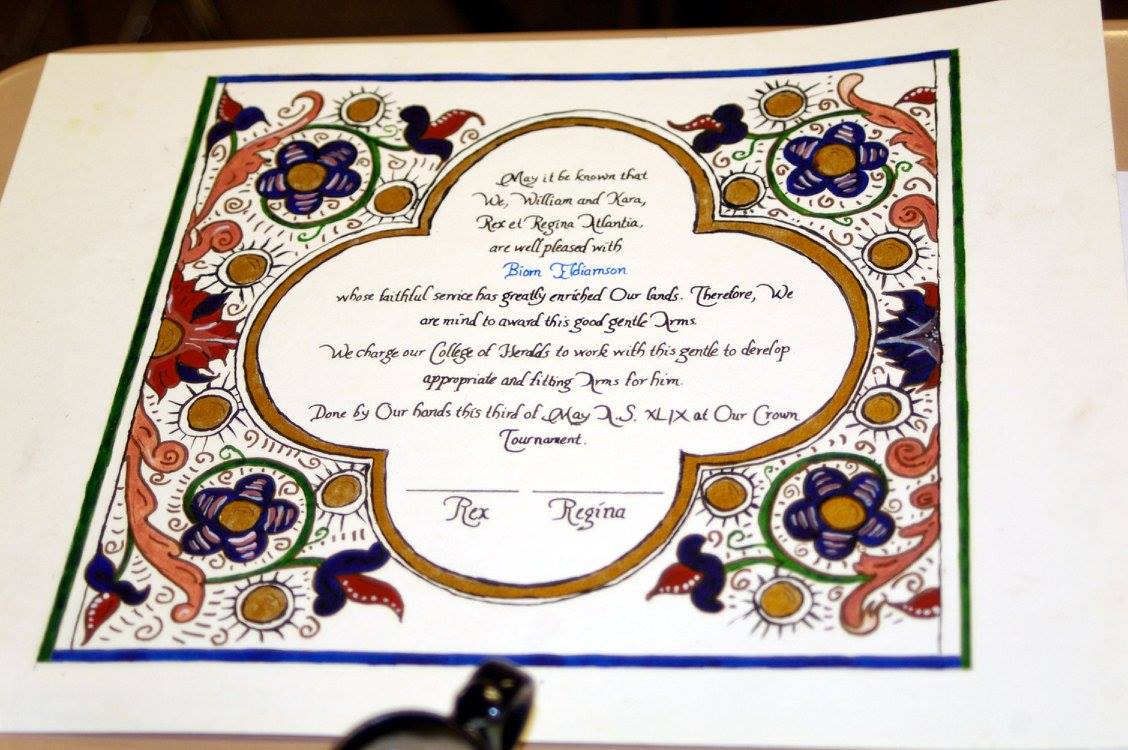 May it be known that
We, William and Kara,
Rex et Regina Atlantia,
are well pleased with
Biorn Eldiarnson
whose faithful service has greatly enriched Our lands. Therefore, We
are mind to award this good gentle Arms.
We charge our College of Heralds to work with this gentle to develop
appropriate and fitting Arms for him.
Done by Our hands this third of May A.S. XLIX at Our Crown
Tournament.
Rex Regina